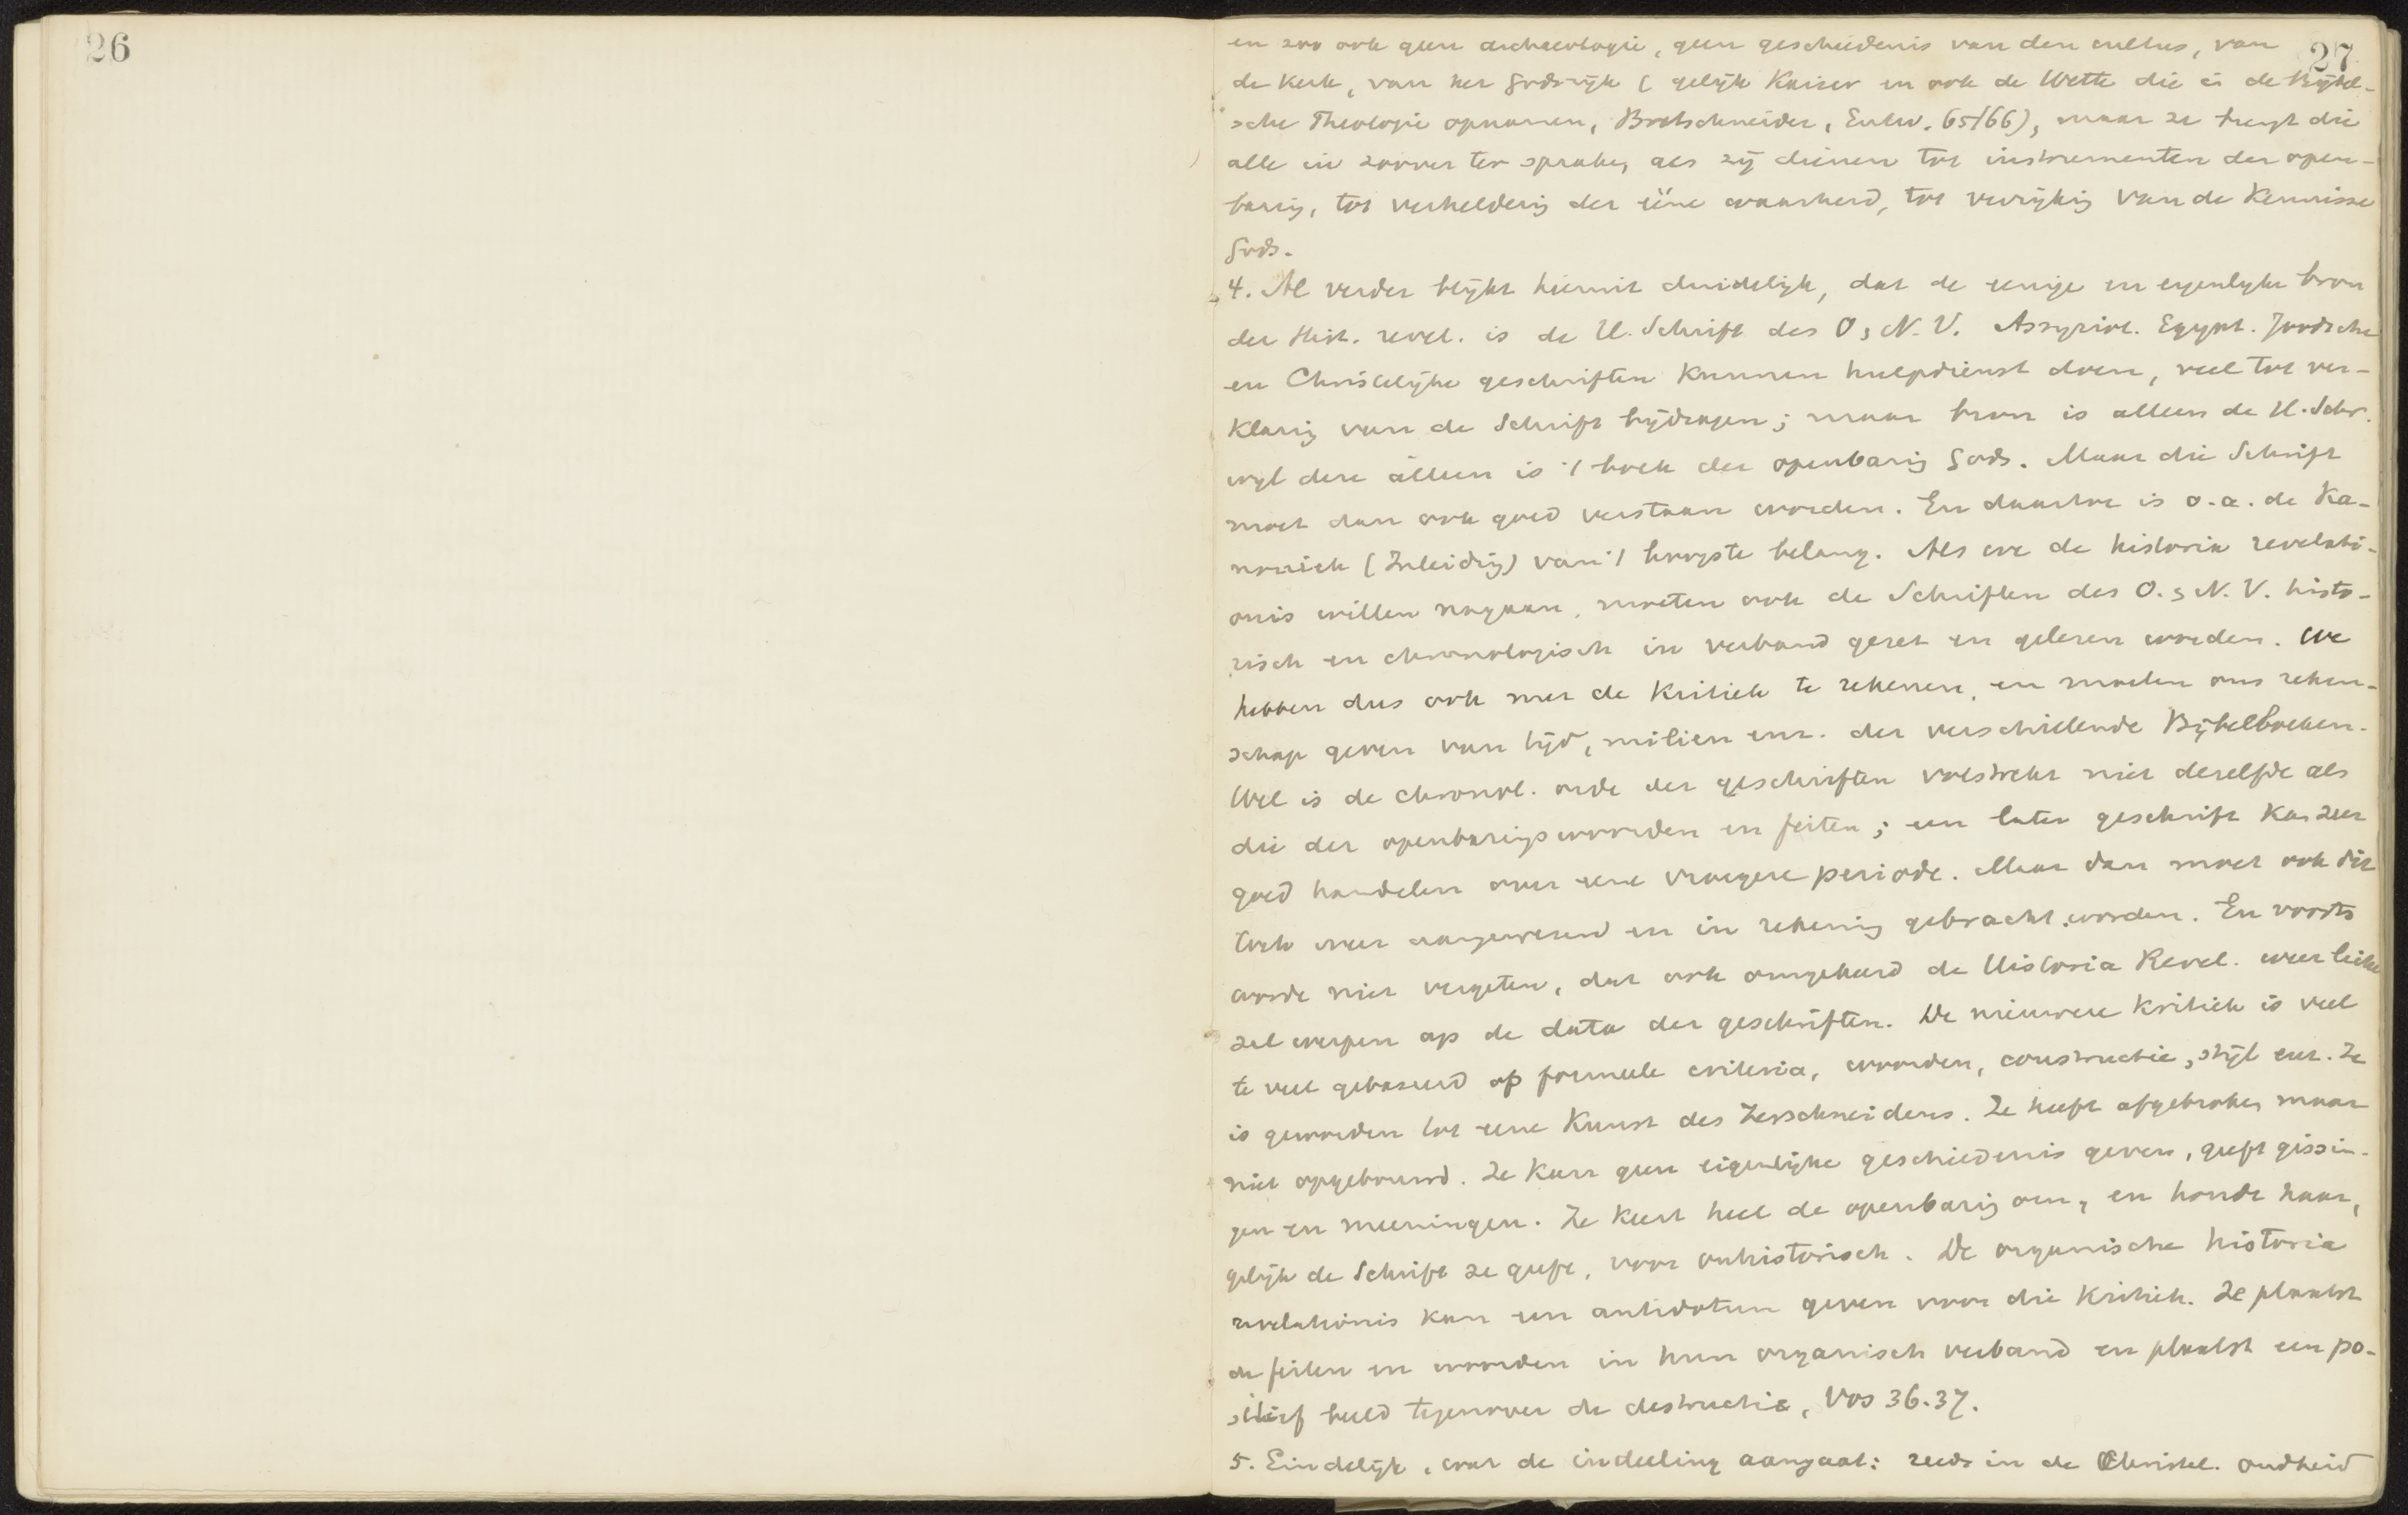 26
27
en zoo ook geen archaeologie, geen geschiedenis van den cultus, van
de Kerk, van het Godsrijk (gelijk Kaiser en ook de Wette die in de Bijbel-
sche Theologie opnamen, Bretschneider, Entw. 65/66), maar ze brengt die
alle in zoover ter sprake, als zij dienen tot instrumenten der open-
baring, tot verheldering der ééne waarheid, tot verrijking van de Kennisse
Gods.
4. Al verder blijkt hieruit duidelijk, dat de eenige en eigenlijke bron
der Hist. revel. is de H. Schrift des O. & N. V. Assyriol. Egypt. Joodsche
en Christelijke geschriften kunnen hulpdienst doen, veel tot ver-
klaring van de Schrift bijdragen; maar bron is alleen de H. Schr.
wijl deze alleen is 't boek der openbaring Gods. Maar die Schrift
moet dan ook goed verstaan worden. En daartoe is o.a. de Ka-
noniek (Inleiding) van 't hoogste belang. Als we de historia revelati-
onis willen nagaan, moeten ook de Schriften des O. & N. V. histo-
risch en chronologisch in verband gezet en gelezen worden. We
hebben dus ook met de Kritiek te rekenen, en moeten ons reken-
schap geven van tijd, milieu enz. der verschillende Bijbelboeken.
Wel is de chronol. orde der geschriften volstrekt niet dezelfde als
die der openbaringswoorden en feiten; een later geschrift kan zeer
goed handelen over eene vroegere periode. Maar dan moet ook dit
toch weer aangewezen en in rekening gebracht worden. En voorts
worde niet vergeten, dat ook omgekeerd de Historia Revel. weer licht
zal werpen op de data der geschriften. De nieuwere Kritiek is veel
te veel gebaseerd op formeele criteria, woorden, constructie, stijl enz. Ze
is geworden tot eene Kunst des Zerschneidens. Ze heeft afgebroken maar
niet opgebouwd. Ze kan geen eigenlijke geschiedenis geven, geeft gissin-
gen en meeningen. Ze keert heel de openbaring om, en houdt haar,
gelijk de Schrift ze geeft, voor onhistorisch. De organische historia
revelationis kan een antidotum geven voor die Kritiek. Ze plaatst
de feiten en woorden in hun organisch verband en plaatst een po-
sitief beeld tegenover de destructie, Vos 36.37.
5. Eindelijk, wat de indeeling aangaat: reeds in de Christel. oudheid